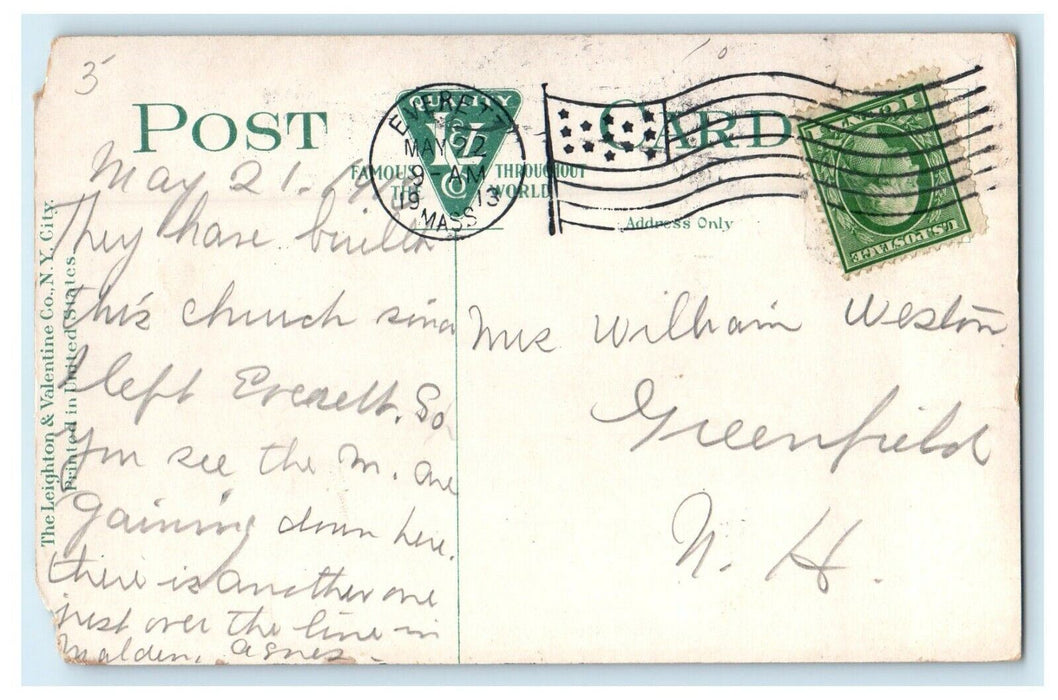 5
POST CARD
QUALITY
L&V
Co
FAMOUS THROUGHOUT
THE WORLD
EVERETT
MAY 22
9-AM
1913
MASS
Address Only
1 CENT 1
U.S. POSTAGE
The Leighton & Valentine Co., N.Y. City.
Printed in United States.
May 21.
They have builded
this church since
I left Everett. So
you see the M. are
gaining down here.
there is another one
just over the line in
Malden. Agnes -
Mrs William Weston
Greenfield
N. H.